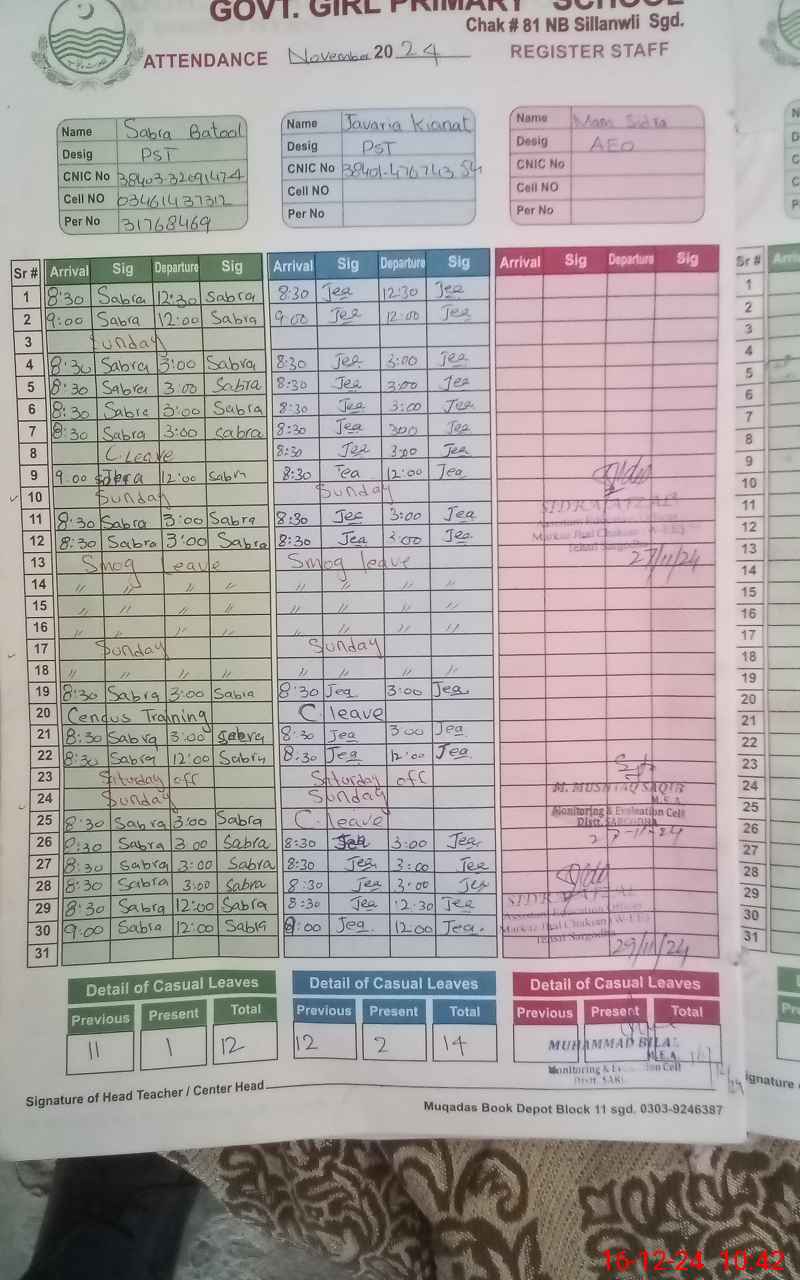 GOVT. GIRL PRIMARY SCHOOL
Chak # 81 NB Sillanwli Sgd.
ATTENDANCE November 2024 REGISTER STAFF
Name Sabra Batool Name Javaria Kianat Name Mam Sidra
Desig PST Desig PST Desig AEO
CNIC No 38403-3209147-4 CNIC No 38401-476743 54 CNIC No
Cell NO 03461437312 Cell NO Cell NO
Per No 31768469 Per No Per No
Sr # Arrival Sig Departure Sig Arrival Sig Departure Sig Arrival Sig Departure Sig Sr #
1 8:30 Sabra 12:30 Sabra 8:30 Jea 12:30 Jea 1
2 9:00 Sabra 12:00 Sabra 9:00 Jea 12:00 Jea 2
3 Sunday 3
4 8:30 Sabra 3:00 Sabra 8:30 Jea 3:00 Jea 4
5 8:30 Sabra 3:00 Sabra 8:30 Jea 3:00 Jea 5
6 8:30 Sabra 3:00 Sabra 8:30 Jea 3:00 Jea 6
7 8:30 Sabra 3:00 Sabra 8:30 Jea 3:00 Jea 7
8 C.Leave 8:30 Jea 3:00 Jea 8
9 9.00 Sabra 12:00 Sabra 8:30 Jea 12:00 Jea 9
10 Sunday Sunday 10
11 8:30 Sabra 3:00 Sabra 8:30 Jea 3:00 Jea SIDRA AFZAL 11
12 8:30 Sabra 3:00 Sabra 8:30 Jea 3:00 Jea 12
13 Smog Leave Smog leave Tehsil Sargodha 27/11/24 13
14 〃 〃 〃 〃 〃 〃 〃 〃 14
15 〃 〃 〃 〃 〃 〃 〃 〃 15
16 〃 〃 〃 〃 〃 〃 〃 〃 16
17 Sunday Sunday 17
18 〃 〃 〃 〃 〃 〃 〃 〃 18
19 8:30 Sabra 3:00 Sabra 8:30 Jea 3:00 Jea 19
20 Cendus Training C.leave 20
21 8:30 Sabra 3:00 Sabra 8:30 Jea 3:00 Jea 21
22 8:30 Sabra 12:00 Sabra 8:30 Jea 12:00 Jea 22
23 Saturday off Saturday off 23
24 Sunday Sunday M. MUSHTAQ SAQIB 24
M.E.A
25 8:30 Sabra 3:00 Sabra C.leave Monitoring & Evaluation Cell 25
Distt. SARGODHA
26 8:30 Sabra 3:00 Sabra 8:30 Jea 3:00 Jea 27-11-24 26
27 8:30 Sabra 3:00 Sabra 8:30 Jea 3:00 Jea 27
28 8:30 Sabra 3:00 Sabra 8:30 Jea 3:00 Jea 28
29 8:30 Sabra 12:00 Sabra 8:30 Jea 12:30 Jea SIDRA AFZAL 29
30 9:00 Sabra 12:00 Sabra 9:00 Jea 12:00 Jea 30
31 Tehsil Sargodha 29/11/24 31
Detail of Casual Leaves Detail of Casual Leaves Detail of Casual Leaves
Previous Present Total Previous Present Total Previous Present Total
11 1 12 12 2 14
MUHAMMAD BILAL
M.E.A
Monitoring & Evaluation Cell
Signature of Head Teacher / Center Head
Muqadas Book Depot Block 11 sgd. 0303-9246387
16-12-24 10:42